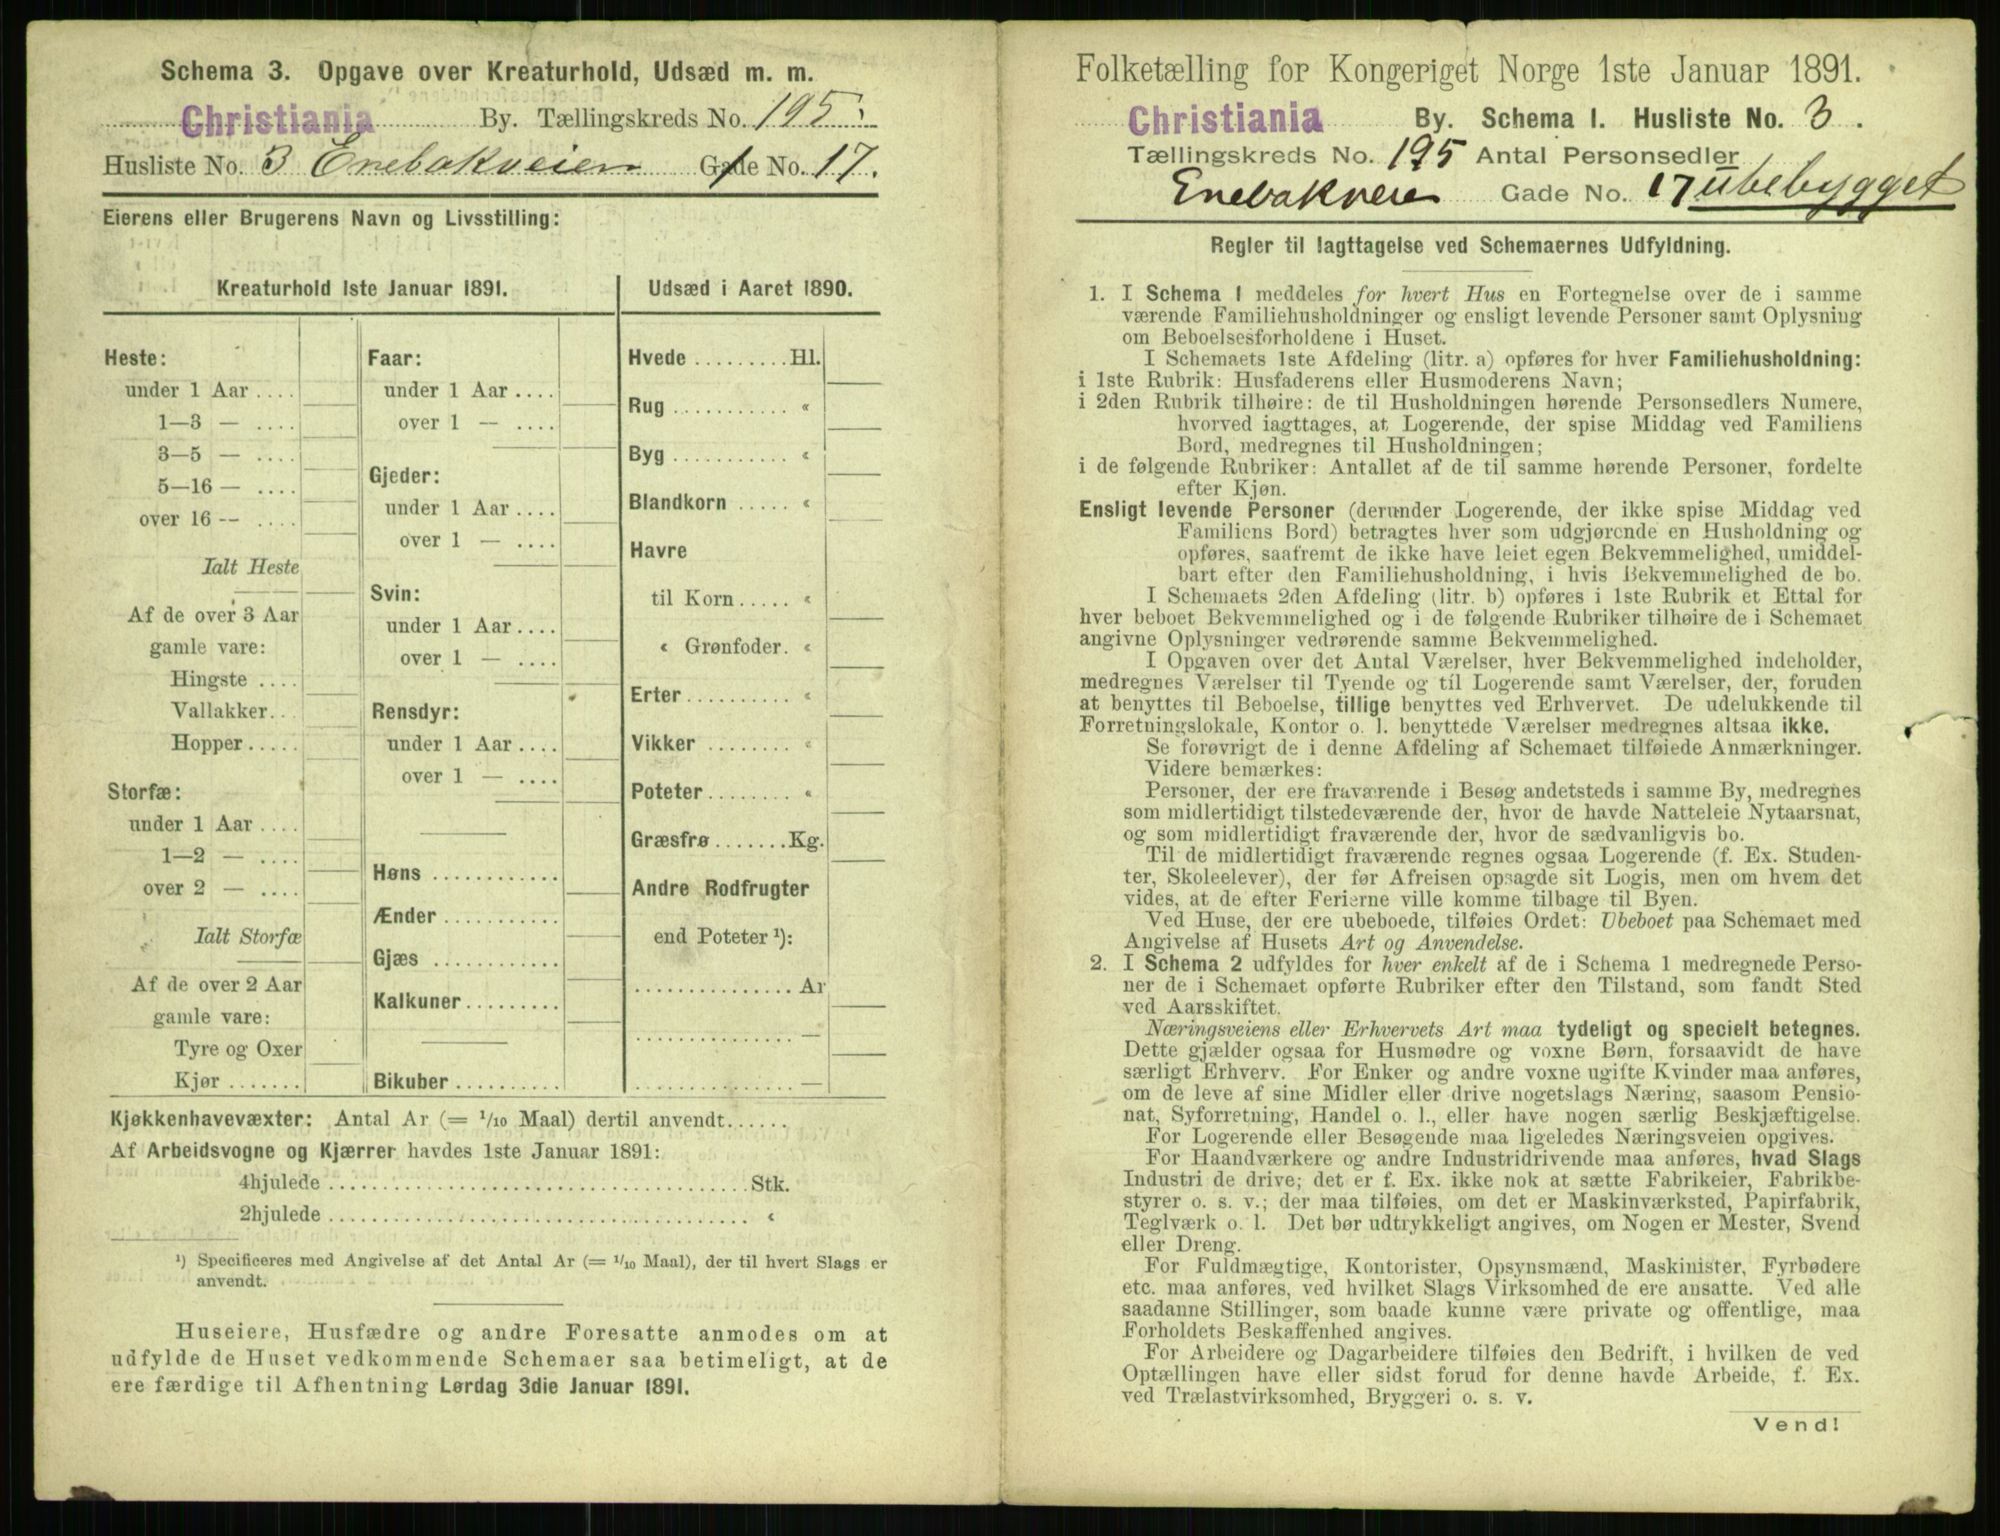 Schema 3. Opgave over Kreaturhold, Udsæd m. m.
Christiania By. Tællingskreds No. 195
Husliste No. 3 Enebakveien Gade No. 17.
Eierens eller Brugerens Navn og Livsstilling:
Kreaturhold 1ste Januar 1891.
Heste:
under 1 Aar ....
1—3 — ....
3—5 — ....
5—16 — ....
over 16 -- ....
Ialt Heste
Af de over 3 Aar
gamle vare:
Hingste ....
Vallakker...
Hopper.....
Storfæ:
under 1 Aar ....
1—2 — ....
over 2 — ....
Ialt Storfæ
Af de over 2 Aar
gamle vare:
Tyre og Oxer
Kjør .......
Faar:
under 1 Aar ....
over 1 — ....
Gjeder:
under 1 Aar ....
over 1 — ....
Svin:
under 1 Aar ....
over 1 — ....
Rensdyr:
under 1 Aar ....
over 1 — ....
Høns ............
Ænder ...........
Gjæs ............
Kalkuner.........
Bikuber ..........
Udsæd i Aaret 1890.
Hvede .........Hl.
Rug ........... «
Byg ........... «
Blandkorn ..... «
Havre
til Korn..... «
« Grønfoder. «
Erter .......... «
Vikker ........ «
Poteter........ «
Græsfrø.......Kg.
Andre Rodfrugter
end Poteter ¹):
............... Ar
............... —
............... —
Kjøkkenhavevæxter: Antal Ar (= 1/10 Maal) dertil anvendt......
Af Arbeidsvogne og Kjærrer havdes 1ste Januar 1891:
4hjulede ........................................ Stk.
2hjulede ........................................ «
¹) Specificeres med Angivelse af det Antal Ar (= 1/10 Maal), der til hvert Slags er
anvendt.
Huseiere, Husfædre og andre Foresatte anmodes om at
udfylde de Huset vedkommende Schemaer saa betimeligt, at de
ere færdige til Afhentning Lørdag 3die Januar 1891.
Folketælling for Kongeriget Norge 1ste Januar 1891.
Christiania By. Schema I. Husliste No. 3.
Tællingskreds No. 195 Antal Personsedler
Enebakveien Gade No. 17 ubebygget
Regler til Iagttagelse ved Schemaernes Udfyldning.
1. I Schema 1 meddeles for hvert Hus en Fortegnelse over de i samme
værende Familiehusholdninger og ensligt levende Personer samt Oplysning
om Beboelsesforholdene i Huset.
I Schemaets 1ste Afdeling (litr. a) opføres for hver Familiehusholdning:
i 1ste Rubrik: Husfaderens eller Husmoderens Navn;
i 2den Rubrik tilhøire: de til Husholdningen hørende Personsedlers Numere,
hvorved iagttages, at Logerende, der spise Middag ved Familiens
Bord, medregnes til Husholdningen;
i de følgende Rubriker: Antallet af de til samme hørende Personer, fordelte
efter Kjøn.
Ensligt levende Personer (derunder Logerende, der ikke spise Middag ved
Familiens Bord) betragtes hver som udgjørende en Husholdning og
opføres, saafremt de ikke have leiet egen Bekvemmelighed, umiddel-
bart efter den Familiehusholdning, i hvis Bekvemmelighed de bo.
I Schemaets 2den Afdeling (litr. b) opføres i 1ste Rubrik et Ettal for
hver beboet Bekvemmelighed og i de følgende Rubriker tilhøire de i Schemaet
angivne Oplysninger vedrørende samme Bekvemmelighed.
I Opgaven over det Antal Værelser, hver Bekvemmelighed indeholder,
medregnes Værelser til Tyende og til Logerende samt Værelser, der, foruden
at benyttes til Beboelse, tillige benyttes ved Erhvervet. De udelukkende til
Forretningslokale, Kontor o. l. benyttede Værelser medregnes altsaa ikke.
Se forøvrigt de i denne Afdeling af Schemaet tilføiede Anmærkninger.
Videre bemærkes:
Personer, der ere fraværende i Besøg andetsteds i samme By, medregnes
som midlertidigt tilstedeværende der, hvor de havde Natteleie Nytaarsnat,
og som midlertidigt fraværende der, hvor de sædvanligvis bo.
Til de midlertidigt fraværende regnes ogsaa Logerende (f. Ex. Studen-
ter, Skoleelever), der før Afreisen opsagde sit Logis, men om hvem det
vides, at de efter Ferierne ville komme tilbage til Byen.
Ved Huse, der ere ubeboede, tilføies Ordet: Ubeboet paa Schemaet med
Angivelse af Husets Art og Anvendelse.
2. I Schema 2 udfyldes for hver enkelt af de i Schema 1 medregnede Perso-
ner de i Schemaet opførte Rubriker efter den Tilstand, som fandt Sted
ved Aarsskiftet.
Næringsveiens eller Erhvervets Art maa tydeligt og specielt betegnes.
Dette gjælder ogsaa for Husmødre og voxne Børn, forsaavidt de have
særligt Erhverv. For Enker og andre voxne ugifte Kvinder maa anføres,
om de leve af sine Midler eller drive nogetslags Næring, saasom Pensio-
nat, Syforretning, Handel o. l., eller have nogen særlig Beskjæftigelse.
For Logerende eller Besøgende maa ligeledes Næringsveien opgives.
For Haandværkere og andre Industridrivende maa anføres, hvad Slags
Industri de drive; det er f. Ex. ikke nok at sætte Fabrikeier, Fabrikbe-
styrer o. s. v.; der maa tilføies, om det er Maskinværksted, Papirfabrik,
Teglværk o. l. Det bør udtrykkeligt angives, om Nogen er Mester, Svend
eller Dreng.
For Fuldmægtige, Kontorister, Opsynsmænd, Maskinister, Fyrbødere
etc. maa anføres, ved hvilket Slags Virksomhed de ere ansatte. Ved alle
saadanne Stillinger, som baade kunne være private og offentlige, maa
Forholdets Beskaffenhed angives.
For Arbeidere og Dagarbeidere tilføies den Bedrift, i hvilken de ved
Optællingen have eller sidst forud for denne havde Arbeide, f. Ex.
ved Trælastvirksomhed, Bryggeri o. s. v.
Vend!